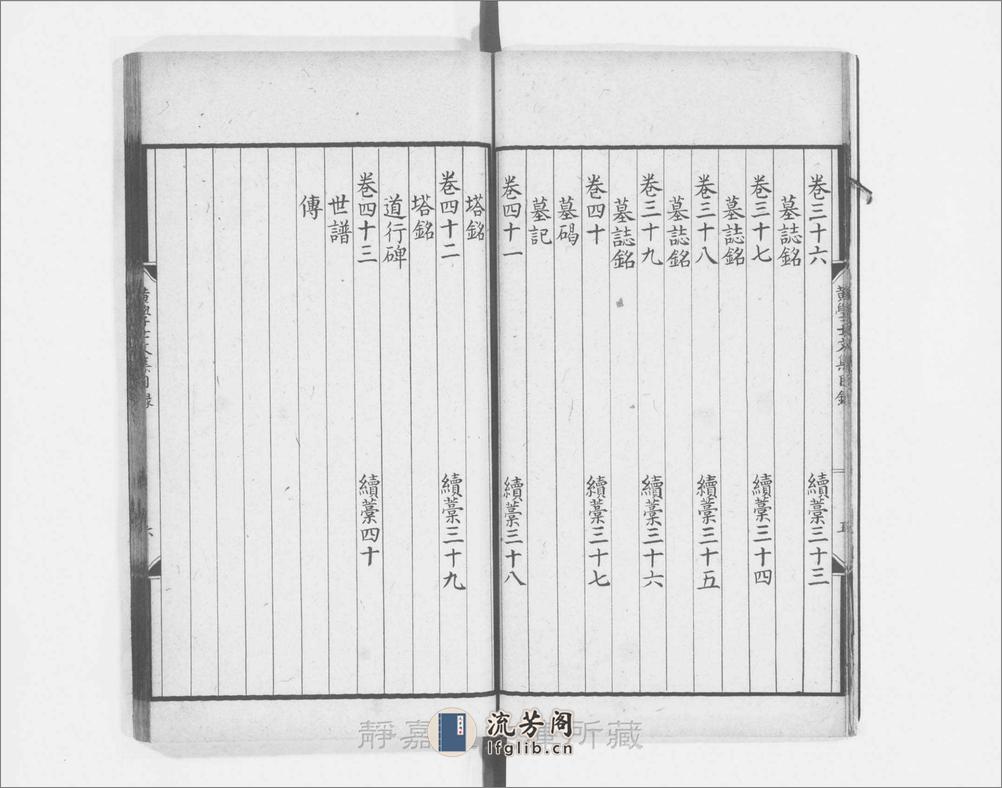 卷三十六　續藁三十三
墓誌銘
卷三十七　續藁三十四
墓誌銘
卷三十八　續藁三十五
墓誌銘
卷三十九　續藁三十六
墓誌銘
卷四十　續藁三十七
墓碣
墓記
卷四十一　續藁三十八
塔銘
卷四十二　續藁三十九
塔銘
道行碑
卷四十三　續藁四十
世譜
傳
黄學士文集目録
五
黄學士文集目録
六
靜嘉 所藏
流芳阁
lfglib.cn